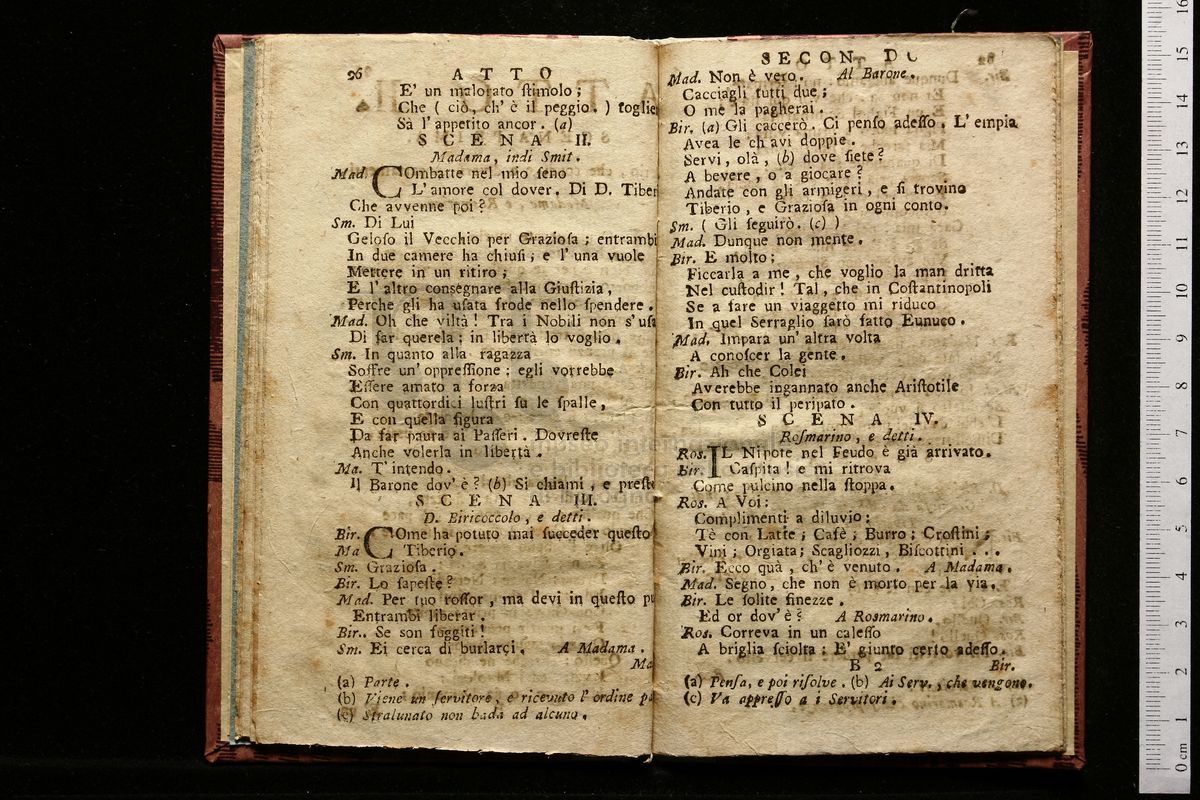 26 ATTO
E' un malorato ſtimolo ;
Che ( ciò, ch' è il peggio. ) toglie
Sà l' appetito ancor. (a)
SCENA II.
Madama, indi Smit.
Mad. COmbatte nel mio ſeno
L'amore col dover. Di D. Tiber
Che avvenne poi ?
Sm. Di Lui
Geloſo il Vecchio per Grazioſa ; entrambi
In due camere ha chiuſi ; e l' una vuole
Mettere in un ritiro ;
E l' altro conſegnare alla Giuſtizia,
Perche gli ha uſata frode nello ſpendere.
Mad. Oh che viltà ! Tra i Nobili non s' uſa
Di far querela ; in libertà lo voglio.
Sm. In quanto alla ragazza
Soffre un' oppreſſione ; egli vorrebbe
Eſſere amato a forza
Con quattordici luſtri ſu le ſpalle,
E con quella figura
Da far paura ai Paſſeri. Dovreſte
Anche volerla in libertà.
Ma. T' intendo.
Il Barone dov' è ? (b) Si chiami, e preſto
SCENA III.
D. Biricoccolo, e detti.
Bir. COme ha potuto mai ſucceder queſto
Ma Tiberio.
Sm. Grazioſa.
Bir. Lo ſapeſte ?
Mad. Per tuo roſſor, ma devi in queſto pu
Entrambi liberar.
Bir.. Se son fuggiti !
Sm. Ei cerca di burlarci. A Madama.
Ma
(a) Parte.
(b) Viene un ſervitore, e ricevuto l' ordine pa
(c) Stralunato non bada ad alcuno.
SECONDO
Mad. Non è vero. Al Barone.
Cacciagli tutti due ;
O me la pagherai.
Bir. (a) Gli caccerò. Ci penſo adeſſo. L' empia
Avea le chiavi doppie.
Servi, olà, (b) dove ſiete ?
A bevere, o a giocare ?
Andate con gli armigeri, e ſi trovino
Tiberio, e Grazioſa in ogni conto.
Sm. ( Gli ſeguirò. (c) )
Mad. Dunque non mente.
Bir. E molto ;
Ficcarla a me, che voglio la man dritta
Nel cuſtodir ! Tal, che in Coſtantinopoli
Se a fare un viaggetto mi riduco
In quel Serraglio ſarò fatto Eunuco.
Mad. Impara un' altra volta
A conoſcer la gente.
Bir. Ah che Colei
Averebbe ingannato anche Ariſtotile
Con tutto il peripato.
SCENA IV.
Roſmarino, e detti.
Ros. IL Nipote nel Feudo è già arrivato.
Bir. Caſpita ! e mi ritrova
Come pulcino nella ſtoppa.
Ros. A Voi :
Complimenti a diluvio :
Tè con Latte ; Cafè ; Burro ; Croſtini ;
Vini ; Orgiata ; Scagliozzi, Biſcottini ...
Bir. Ecco quà, ch' è venuto. A Madama.
Mad. Segno, che non è morto per la via.
Bir. Le ſolite finezze.
Ed or dov' è ? A Rosmarino.
Ros. Correva in un caleſſo
A briglia ſciolta : E' giunto certo adeſſo.
B 2 Bir.
(a) Penſa, e poi riſolve. (b) Ai Serv., che vengono.
(c) Va appreſſo a i Servitori.